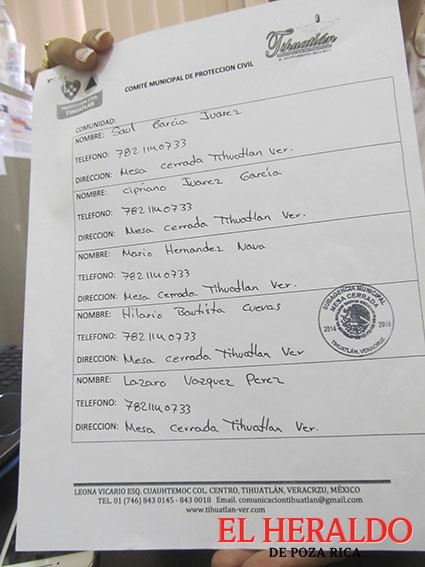 PROTECCION CIVIL
TIHUATLÁN
Tihuatlán
COMITÉ MUNICIPAL DE PROTECCION CIVIL
COMUNIDAD:
NOMBRE: Saul Garcia Juarez
TELEFONO: 7821140733
DIRECCION: Mesa cerrada Tihuatlan Ver.
NOMBRE: Cipriano Juarez Garcia
TELEFONO: 7821140733
DIRECCION: Mesa cerrada Tihuatlan Ver.
NOMBRE: Mario Hernandez Nava
TELEFONO: 7821140733
DIRECCION: Mesa Cerrada Tihuatlan Ver.
NOMBRE: Hilario Bautista Cuevas
TELEFONO: 7821140733
DIRECCION: Mesa cerrada Tihuatlan Ver
NOMBRE: Lazaro Vazquez Perez
TELEFONO: 7821140733
DIRECCION: Mesa cerrada Tihuatlan Ver.
SUBAGENCIA MUNICIPAL
MESA CERRADA
2014 2018
TIHUATLÁN, VERACRUZ
LEONA VICARIO ESQ. CUAUHTEMOC COL. CENTRO, TIHUATLÁN, VERACRZU, MÉXICO
TEL. 01 (746) 843 0145 - 843 0018 Email. comunicaciontihuatlan@gmail.com
www.tihuatlan-ver.com
EL HERALDO
DE POZA RICA